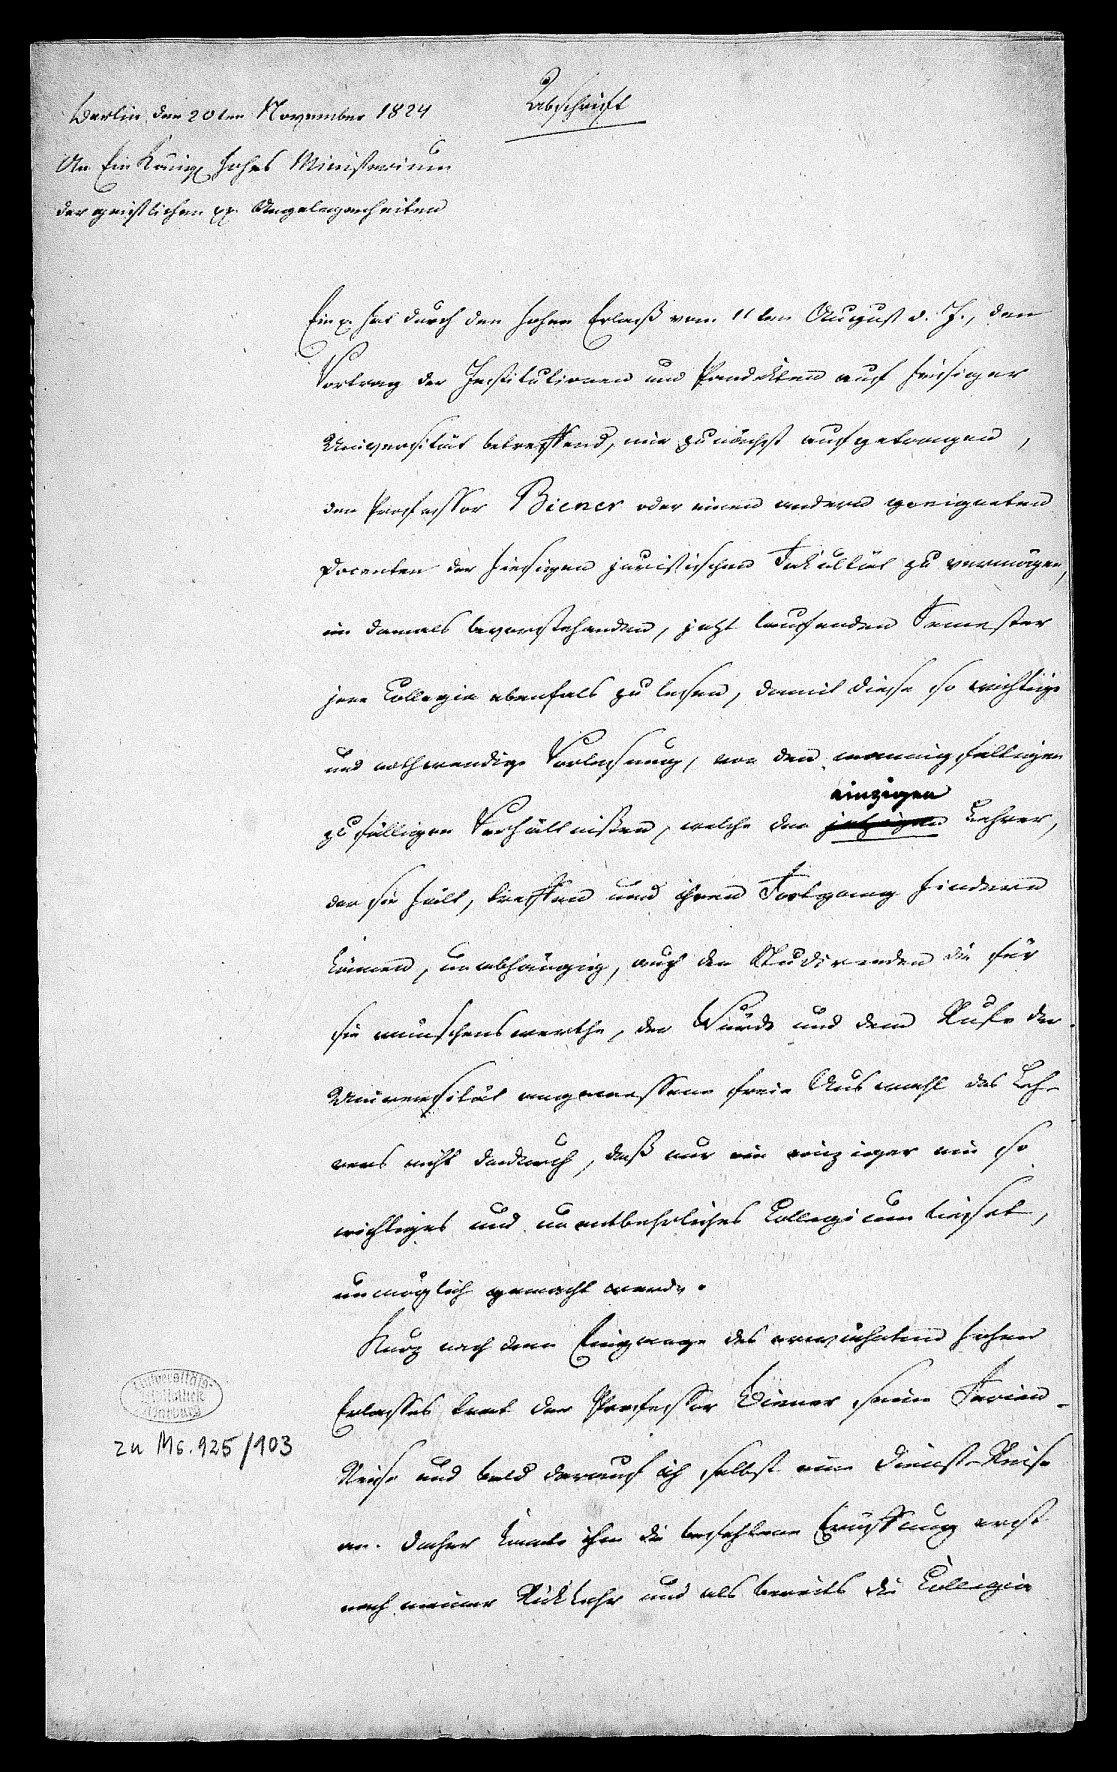 Abschrift
Berlin den 20ten November 1824
An Ein Königl. hohes Ministerium
der geistlichen pp. Angelegenheiten
Ein p. hat durch den hohen Erlaß vom 11ten August d. J., den
Vortrag der Institutionen und Pandekten auf hiesiger
Universität betreffend, mir zunächst aufgetragen,
den Professor Biener oder einen andern geeigneten
Docenten der hiesigen juristischen Fakultät zu vermögen,
im damals bevorstehenden, jetzt laufenden Semester
jene Collegia ebenfals zu lesen, damit diese so wichtige
und nothwendige Vorlesung, von den mannigfaltigen
einzigen
zufälligen Verhältnißen, welche den jetzigen Lehrer,
der sie hält, treffen und ihren Fortgang hindern
können, unabhängig, auch den Studirenden die für
sie wünschenswerthe, der Würde und dem Rufe der
Universität angemessene freie Auswahl des Leh-
rers nicht dadurch, daß nur ein einziger ein so
wichtiges und unentbehrliches Collegium lieset,
unmöglich gemacht werde.
Kurz nach dem Eingange des erwähnten hohen
Erlasses trat der Professor Biener seine Ferien-
Reise und bald darauf ich selbst eine Dienst-Reise
an. Daher konnte ihm die befohlene Eröffnung erst
nach meiner Rückkehr und als bereits die Collegia
Universitäts-
Bibliothek
Marburg
zu Ms. 925/103